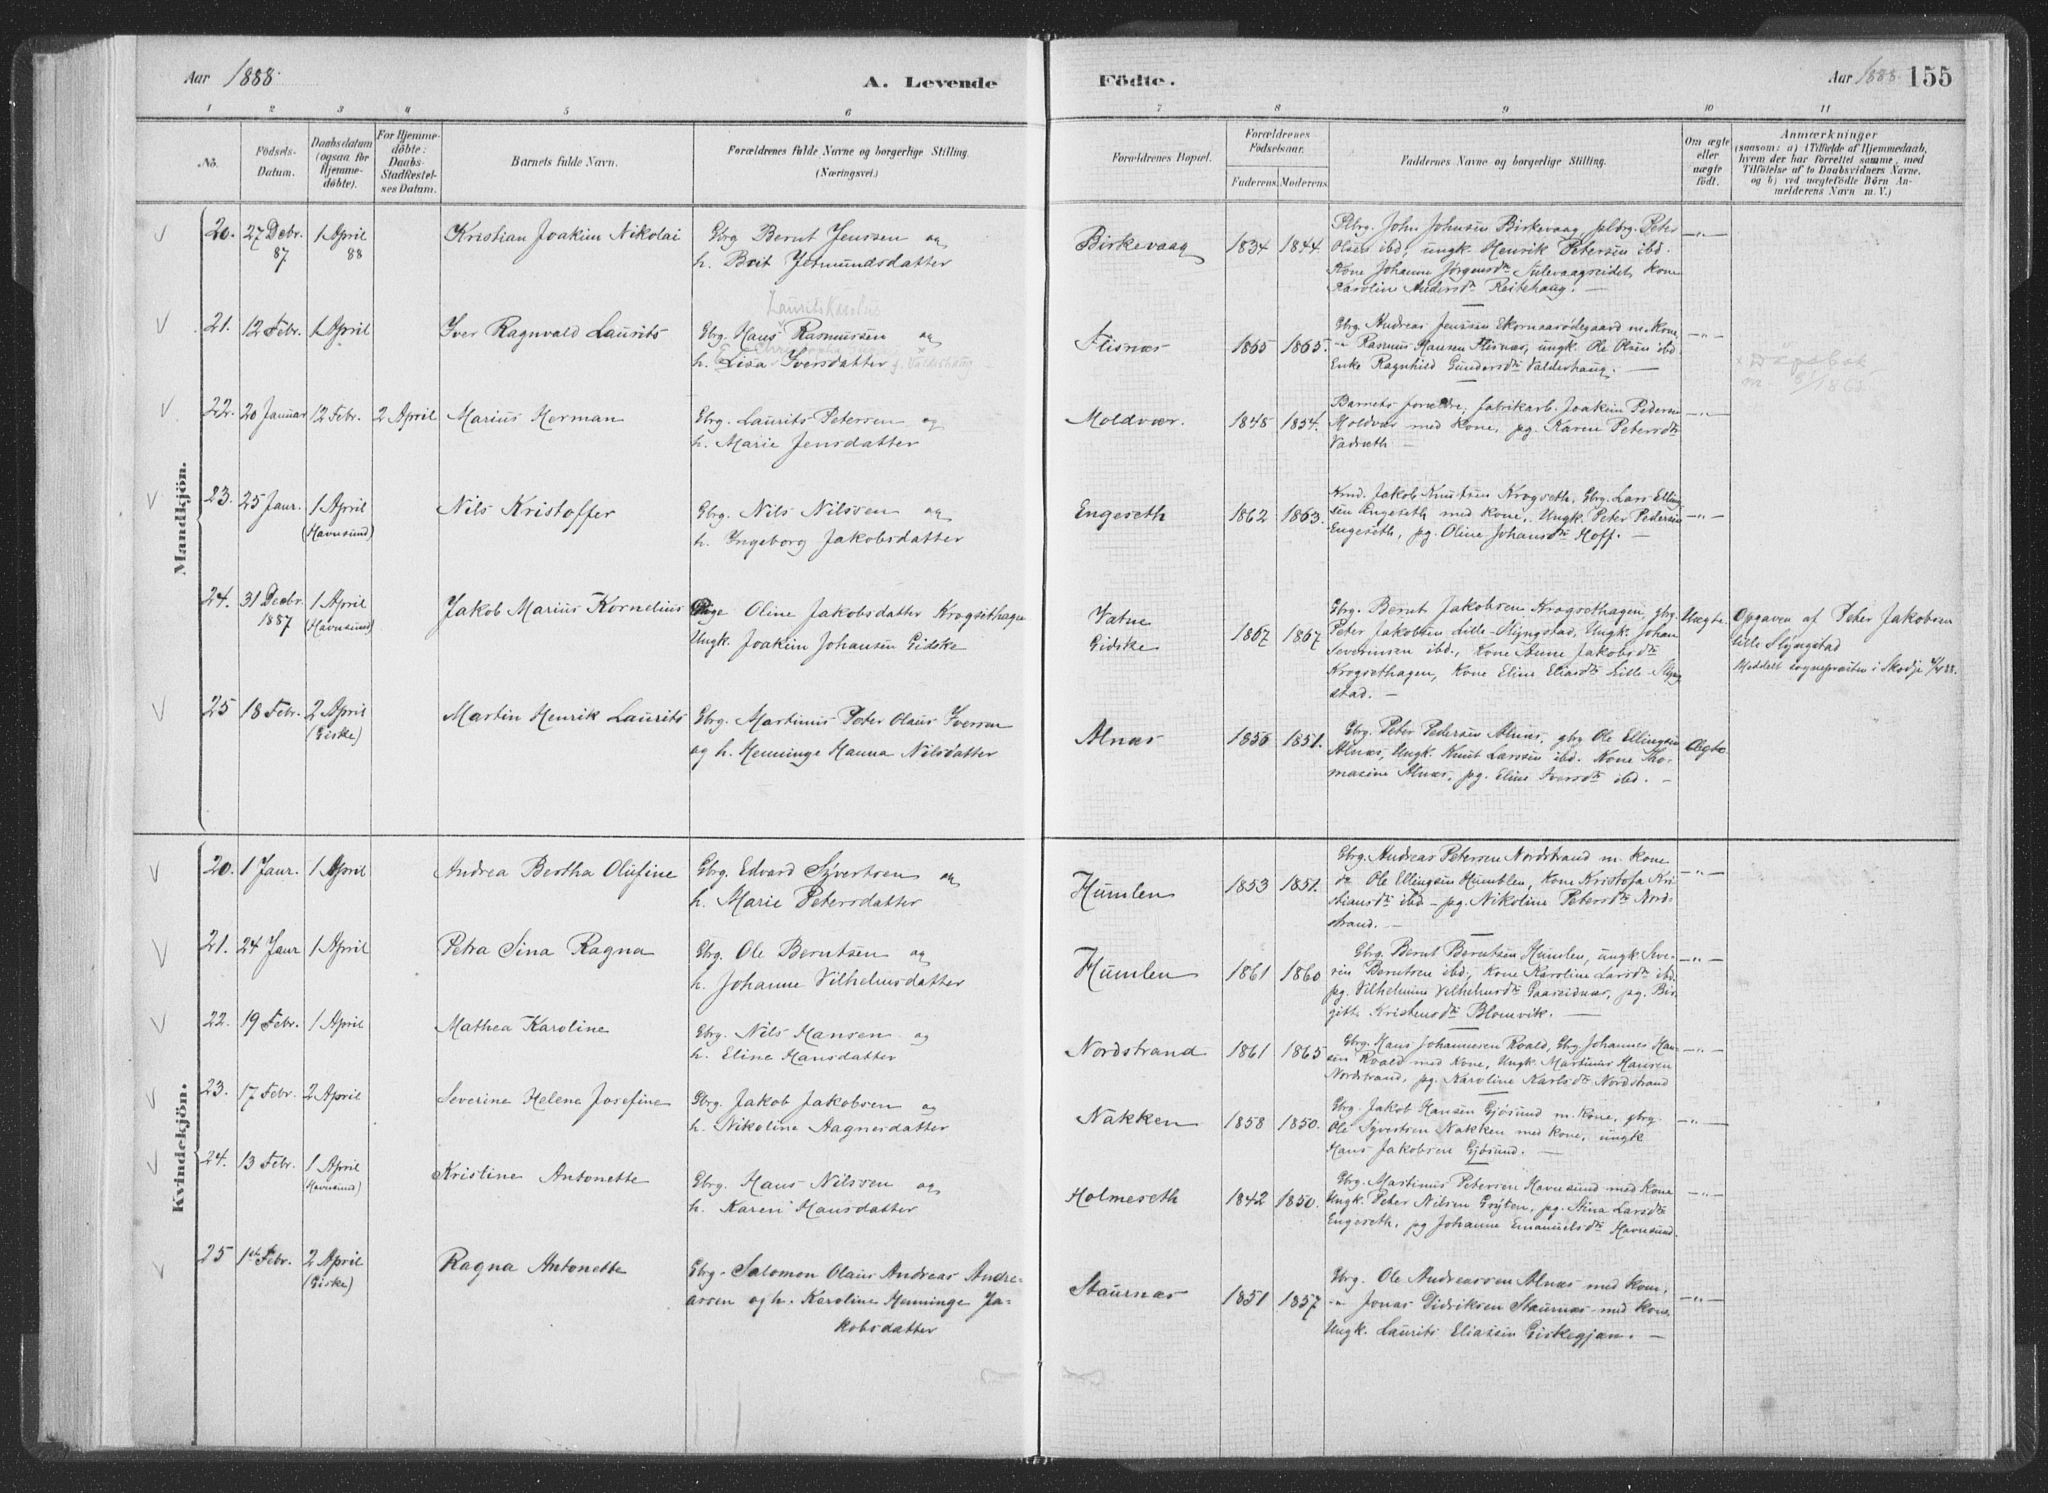 Aar 1888.
A. Levende
Födte.
Aar 1888.
155
1 2 3 4 5 6 7 8 9 10 11
No.
Födsels-
Datum.
Daabsdatum
(ogsaa for
Hjemme-
döbte).
For Hjemme-
döbte:
Daabs-
Stadfæstel-
ses Datum.
Barnets fulde Navn.
Forældrenes fulde Navne og borgerlige Stilling.
(Næringsvei.)
Forældrenes Bopæl.
Forældrenes
Födselsaar.
Faderens.
Moderens.
Faddernes Navne og borgerlige Stilling.
Om ægte
eller
uægte
födt.
Anmærkninger
(saasom: a) i Tilfælde af Hjemmedaab,
hvem der har forrettet samme, med
Tilföielse af to Daabsvidners Navne,
og b) ved uægtefödte Börn An-
melderens Navn m. V.)
Mandkjön.
20. 27 Decbr. 87 1 April 88 Kristian Joakim Nikolai
Gbrg Bernt Jenssen og
h. Brit Jetmundsdatter
Birkevaag 1834 1844.
Plbrg. John Johnsen Birkevaag, plbrg. Peter
Olsen ibd, ungk. Henrik Petersen ibd.
Kone Johanne Jørgensdtr Sulevaagseidet, Kone
Karoline Andersdtr Reitehaug. —
— " —
21. 12 Febr. 1 April Iver Ragnvald Laurits
Gbrg. Hans Rasmussen og
h. Lisa Iversdatter
Flisnæs 1865 1865.
Gbrg. Andreas Jenssen Ekornaasødegaard m. Kone
" Rasmus Hansen Flisnæs, ungk. Ole Olsen ibd.
Enke Ragnhild Gundersdtr Valderhaug. —
— " —
22. 20 Januar 12 Febr. 2 April Marius Herman
Gbrg. Laurits Petersen og
h. Marie Jensdatter
Moldvær. 1848 1854.
Barnets forældre, fabrikarb. Joakim Pedersen
Moldvær med Kone, pg. Karen Petersdtr
Vadseth —
— " —
23. 25 Janr. 1 April (Havnsund) Nils Kristoffer
Gbrg. Nils Nilssen og
h. Ingeborg Jakobsdatter
Engeseth 1862 1863.
Jakob Knutsen Krogseth, Gbrg. Lars Elling-
sen Engeseth med Kone, Ungk. Peter Pedersen
Engeseth, pg. Oline Johansdtr Hoff. —
— " —
24. 31 Decbr. 1887 1 April (Havnsund) Jakob Marius Kornelius
Pige Oline Jakobsdatter Krogsethagen
Ungk. Joakim Johansen Gidske
Vatne
Gidske
1867 1867
Gbrg. Bernt Jakobsen Krogsethagen, gbrg.
Peter Jakobsen Lille-Slyngstad, Ungk. Johan
Severinsen ibd., Kone Anne Jakobsdtr
Krogsethagen, Kone Eline Eliasdtr Lille-Slyng-
stad. —
Uægte.
Opgaven af Peter Jakobsen
lille Slyngstad
Meddelt sognepræsten i Skodje
25 18 Febr. 2 April (Giske) Martin Henrik Laurits
Gbrg. Martinus Peter Olaus Iversen
og h. Henninge Hanna Nilsdatter
Alnæs 1856 1851.
Gbrg. Peter Pedersen Alnæs, gbrg Ole Ellingsen
Alnæs, Ungk. Knut Larssen ibd. Kone Tho-
masine Alnæs, pg. Eline Iversdtr ibd. —
Ægte
Kvindekjön.
20. 1 Janr. 1 April Andrea Bertha Olufine
Gbrg. Edvard Syvertsen og
h. Marie Petersdatter
Humlen 1853 1851.
Gbrg. Andreas Petersen Nordstrand m. Kone
do Ole Ellingsen Humblen, Kone Kristofa Kri-
stiansdtr ibd — pg. Nikoline Petersdtr Nord-
strand. —
— " —
21. 24 Janr 1 April Petra Sina Ragna
Gbrg. Ole Berntsen og
h. Johanne Vilhelmsdatter
Humlen 1861 1860
Gbrg. Bernt Berntsen Humlen, ungk. Seve-
rin Berntsen ibd, Kone Karoline Larsdtr ibd.
pg. Vilhelmine Vilhelmsdtr Gaaseidnæs, pg. Bir-
gitte Kristensdtr Blomvik. —
— " —
22. 19 Febr. 1 April Mathea Karoline
Gbrg. Nils Hansen og
h. Eline Hansdatter
Nordstrand 1861 1865
Gbrg. Hans Johannesen Roald, Gbrg Johannes Han-
sen Roald med Kone, Ungk. Martinus Hansen
Nordstrand, pg. Karoline Karlsdtr Nordstrand
— " —
23. 17 Febr. 2 April Severine Helene Josefine
Gbrg. Jakob Jakobsen og
h. Nikoline Aagnesdatter
Nakken 1858 1850.
Gbrg. Jakob Hansen Gjøsund m. Kone, gbrg.
Ole Syvertsen Nakken med Kone, ungk
Hans Jakobsen Gjøsund. —
— " —
24. 13 Febr. 1 April (Havnsund) Kristine Antonette
Gbrg. Hans Nilssen og
h. Karen Hansdatter
Holmeseth 1842 1850.
Gbrg. Martinus Petersen Havnsund med Kone
Ungk. Peter Nilsen Gryten, pg. Stina Larsdtr
Engeseth, pg Johanne Emanuelsdtr Havnsund.
— " —
25 1st Febr. 2 April (Giske) Ragna Antonette
Gbrg. Salomon Olaus Andreas Andre-
assen og h. Karoline Henninge Ja-
kobsdatter
Staurnæs 1851 1857
Gbrg. Ole Andreassen Alnæs med Kone,
" Jonas Didriksen Staurnæs med Kone,
Ungk. Laurits Eliassen Giskegjæn. —
— " —